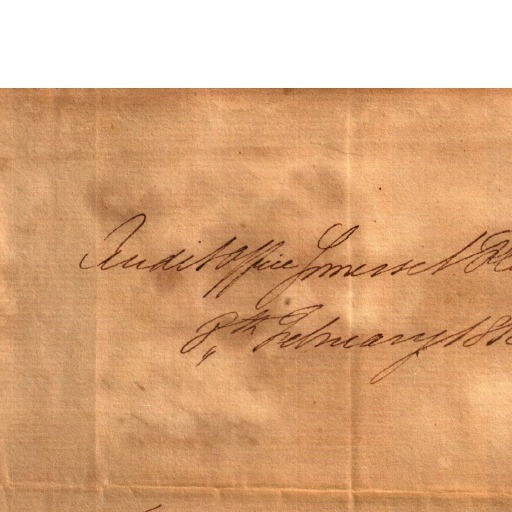 Audit Office Somerset Pl
8th February 18